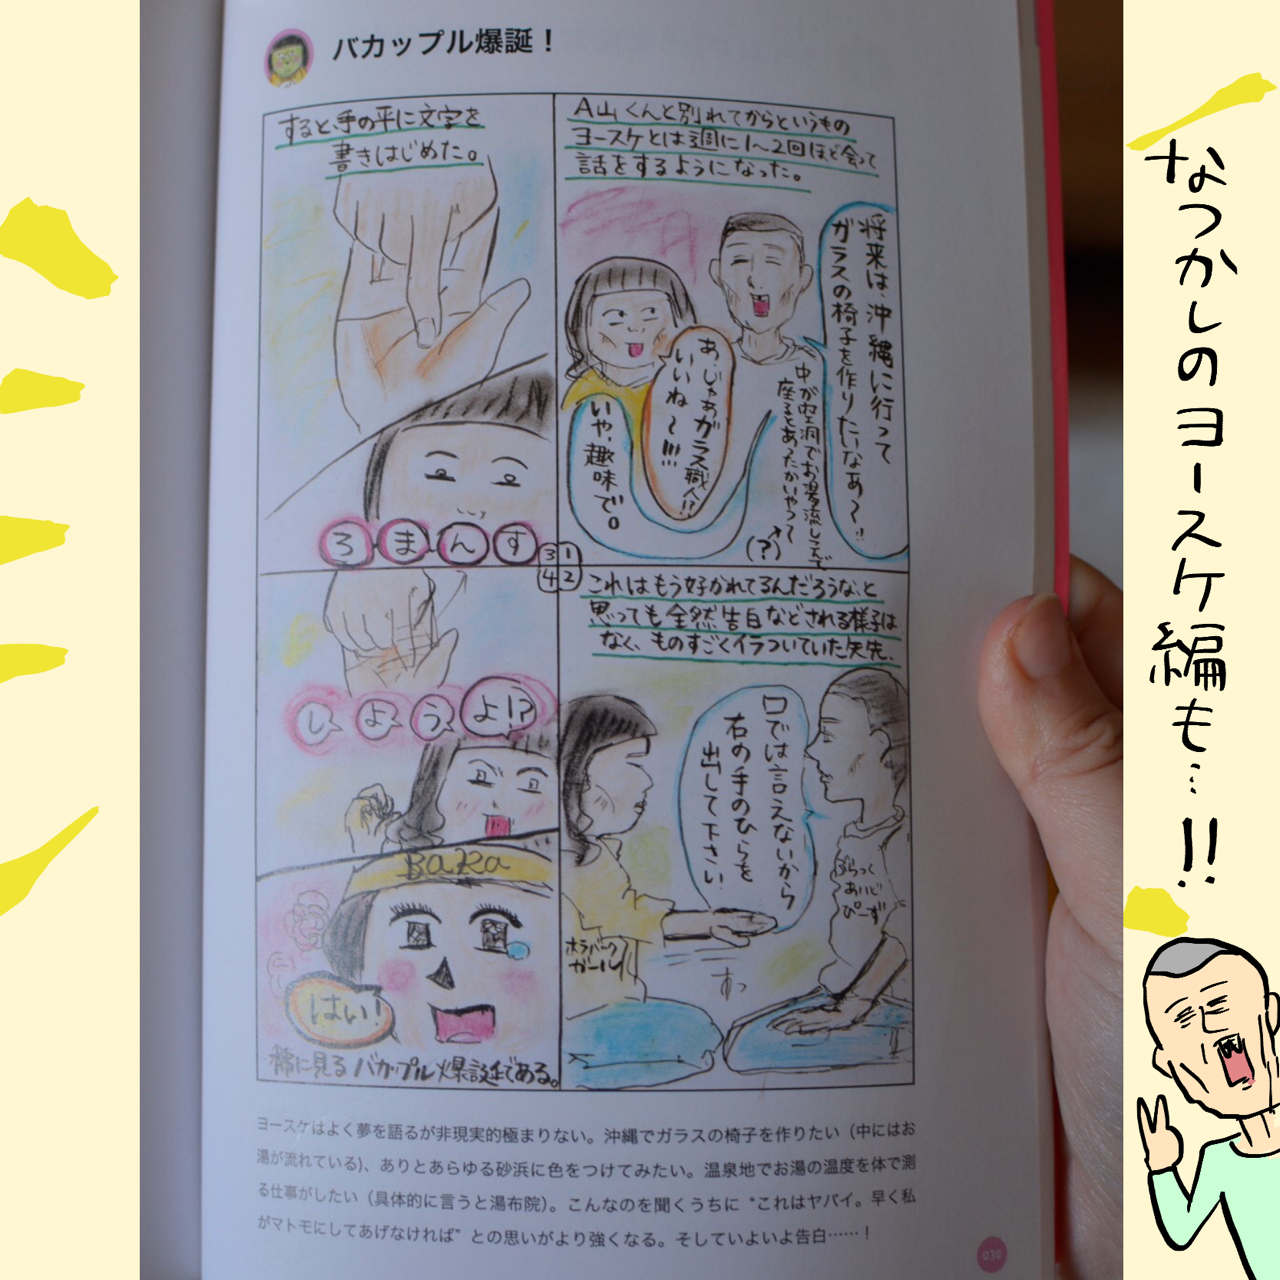 バカップル爆誕！
A山くんと別れてからというもの
ヨースケとは週に1〜2回ほど会って
話をするようになった。
将来は、沖縄に行って
ガラスの椅子を作りたいなあ〜!!
中が空洞でお湯流しこんで
座るとあったかいやつ
(?)
あ、じゃあガラス職人!?
いいね〜!!!
いや、趣味で。
1
2
3
4
これはもう好かれてるんだろうな、と
思っても全然告白などされる様子は
なく、ものすごくイラついていた矢先、
口では言えないから
右の手のひらを
出して下さい
ぶらっく
あいど
ぴーず
ホラバック
ガール
すっ
すると、手の平に文字を
書きはじめた。
ろまんす
しようよ!?
BaRa
はい!
稀に見るバカップル爆誕である。
ヨースケはよく夢を語るが非現実的極まりない。沖縄でガラスの椅子を作りたい（中にはお
湯が流れている)、ありとあらゆる砂浜に色をつけてみたい。温泉地でお湯の温度を体で測
る仕事がしたい（具体的に言うと湯布院）。こんなのを聞くうちに“これはヤバイ。早く私
がマトモにしてあげなければ”との思いがより強くなる。そしていよいよ告白……！
030
なつかしのヨースケ編も…!!